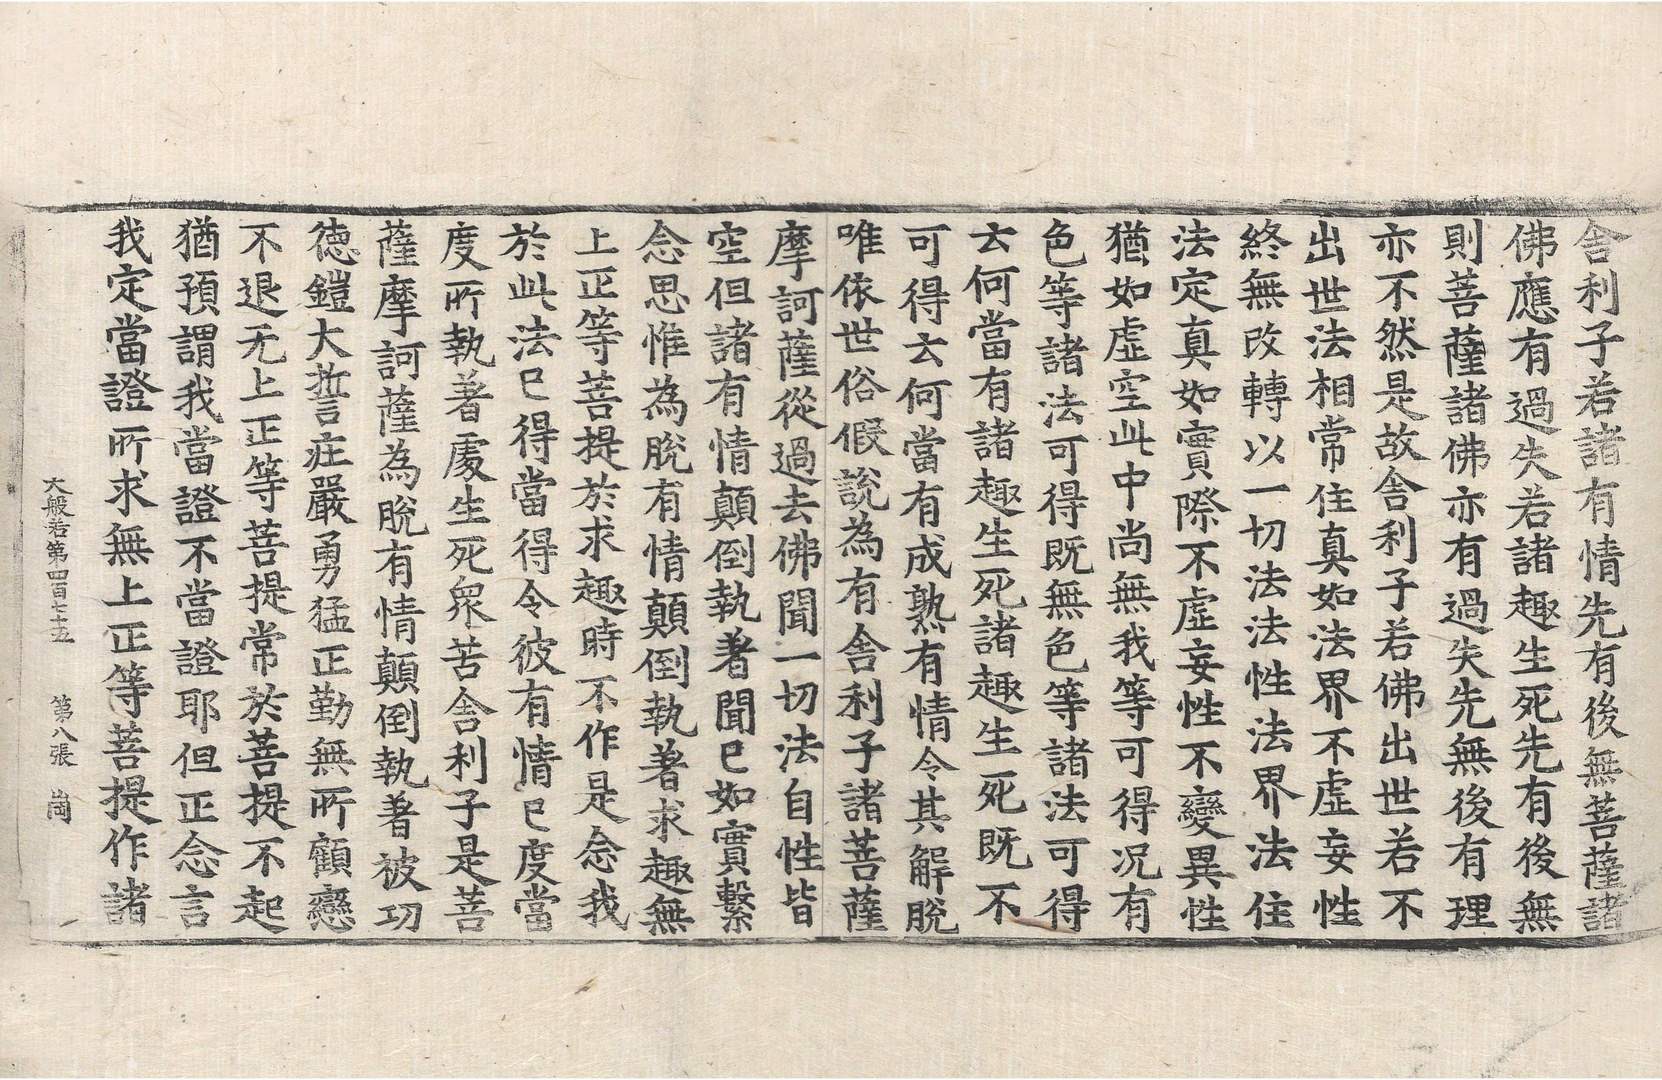 舍利子若諸有情先有後無菩薩諸
佛應有過失若諸趣生死先有後無
則菩薩諸佛亦有過失先無後有理
亦不然是故舍利子若佛出世若不
出世法相常住真如法界不虛妄性
終無改轉以一切法法性法界法住
法定真如實際不虛妄性不變異性
猶如虛空此中尚無我等可得況有
色等諸法可得既無色等諸法可得
云何當有諸趣生死諸趣生死既不
可得云何當有成熟有情令其解脫
唯依世俗假說為有舍利子諸菩薩
摩訶薩從過去佛聞一切法自性皆
空但諸有情顛倒執著聞已如實繫
念思惟為脫有情顛倒執著求趣無
上正等菩提於求趣時不作是念我
於此法已得當得令彼有情已度當
度所執著處生死衆苦舍利子是菩
薩摩訶薩為脫有情顛倒執著被功
德鎧大誓庄嚴勇猛正勤無所顧戀
不退无上正等菩提常於菩提不起
猶預謂我當證不當證耶但正念言
我定當證所求無上正等菩提作諸
大般若第四百七十五 第八張 崗